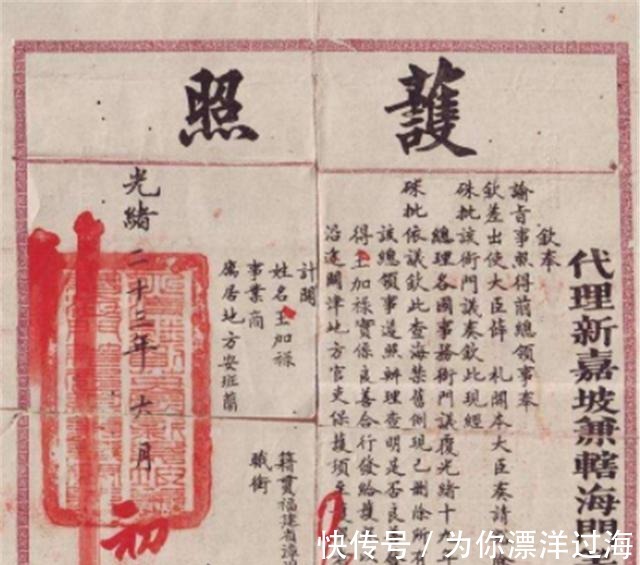 護照
代理新嘉坡兼轄海門
欽奉
諭旨事照得前總領事奉
欽差出使大臣薛 札開本大臣奏請
硃批該衙門議奏欽此現經
總理各國事務衙門議覆光緒十九年
硃批依議欽此查海禁舊例現已刪除所有
該總領事遵照辦理查明是否良
得王加祿實係良善合行發給護
沿途關津地方官吏保護
計開
姓名王加祿
事業商
寓居地方安班蘭
籍貫福建省漳
職銜
光緒二十三年六月
初
快传号/为你漂洋过海